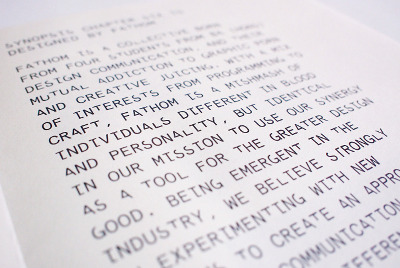 SYNOPSIS CHAPTER SIX TO
DESIGNED BY FATHOM
FATHOM IS A COLLECTIVE BORN
FROM FOUR STUDENTS FROM BA (HONS)
DESIGN COMMUNICATION, AND THESE
MUTUAL ADDICTION TO GRAPHIC PORN
AND CREATIVE JUICING. WITH A MIX
OF INTERESTS FROM PROGRAMMING TO
CRAFT, FATHOM IS A MISHMASH OF
INDIVIDUALS DIFFERENT IN BLOOD
AND PERSONALITY, BUT IDENTICAL
IN OUR MISSION TO USE OUR SYNERGY
AS A TOOL FOR THE GREATER DESIGN
GOOD. BEING EMERGENT IN THE
INDUSTRY, WE BELIEVE STRONGLY
EXPERIMENTING WITH NEW
TO CREATE AN APPRO
COMMUNICATION
DIFFEREN